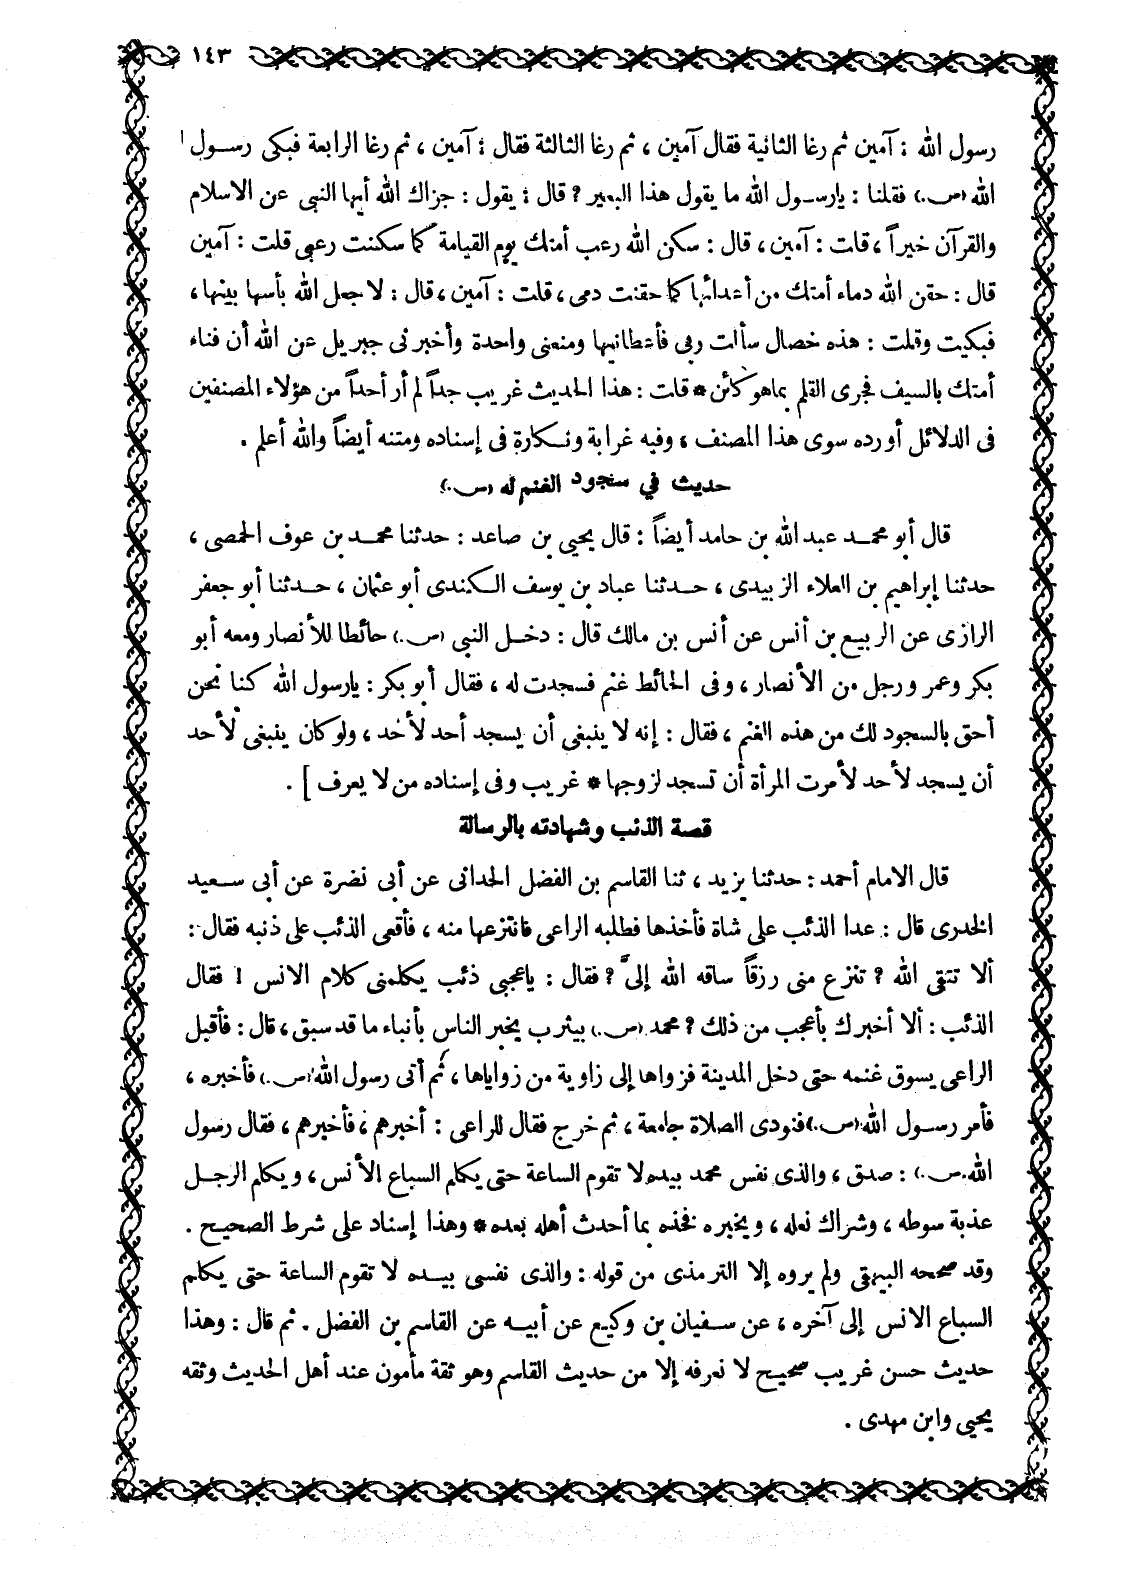 ١٤٣
رسول الله : آمين ثم رغا الثانية فقال آمين ، ثم رغا الثالثة فقال : آمين ، ثم رغا الرابعة فبكى رسول
الله (ص.) فقلنا : يارسول الله ما يقول هذا البعير ? قال : يقول : جزاك الله أيها النبى عن الاسلام
والقرآن خيراً ، قلت : آمين ، قال : سكن الله رعب أمتك يوم القيامة كما سكنت رعبى قلت : آمين
قال : حقن الله دماء أمتك من أعدائها كما حقنت دمى ، قلت : آمين ، قال : لا جعل الله بأسها بينها ،
فبكيت وقلت : هذه خصال سألت ربى فأعطانيها ومنعنى واحدة وأخبرنى جبريل عن الله أن فناء
أمتك بالسيف فجرى القلم بماهو كائن * قلت : هذا الحديث غريب جداً لم أر أحداً من هؤلاء المصنفين
فى الدلائل أورده سوى هذا المصنف ، وفيه غرابة ونكارة فى إسناده ومتنه أيضاً والله أعلم .
حديث في سجود الغنم له (ص.)
قال أبو محمد عبد الله بن حامد أيضاً : قال يحيى بن صاعد : حدثنا محمد بن عوف الحمصى ،
حدثنا إبراهيم بن العلاء الزبيدى ، حدثنا عباد بن يوسف الكندى أبو عثمان ، حدثنا أبو جعفر
الرازى عن الربيع بن أنس عن أنس بن مالك قال : دخل النبى (ص.) حائطا للأنصار ومعه أبو
بكر وعمر ورجل من الأنصار ، وفى الحائط غنم فسجدت له ، فقال أبو بكر : يارسول الله كنا نحن
أحق بالسجود لك من هذه الغنم ، فقال : إنه لا ينبغى أن يسجد أحد لأحد ، ولو كان ينبغى لأحد
أن يسجد لأحد لأمرت المرأة أن تسجد لزوجها * غريب وفى إسناده من لا يعرف ] .
قصة الذئب وشهادته بالرسالة
قال الامام أحمد : حدثنا يزيد ، ثنا القاسم بن الفضل الحدانى عن أبى نضرة عن أبى سعيد
الخدرى قال : عدا الذئب على شاة فأخذها فطلبه الراعى فانتزعها منه ، فأقعى الذئب على ذنبه فقال :
ألا تتقى الله ? تنزع منى رزقاً ساقه الله إلىَّ ? فقال : ياعجبى ذئب يكلمنى كلام الانس ! فقال
الذئب : ألا أخبرك بأعجب من ذلك ? محمد (ص.) بيثرب يخبر الناس بأنباء ما قد سبق ، قال : فأقبل
الراعى يسوق غنمه حتى دخل المدينة فزواها إلى زاوية من زواياها ، ثم أتى رسول الله (ص.) فأخبره ،
فأمر رسول الله (ص.) فنودى الصلاة جامعة ، ثم خرج فقال للراعى : أخبرهم ، فأخبرهم ، فقال رسول
الله (ص.) : صدق ، والذى نفس محمد بيده لا تقوم الساعة حتى يكلم السباع الأنس ، ويكلم الرجل
عذبة سوطه ، وشراك نعله ، ويخبره فخذه بما أحدث أهله بعده * وهذا إسناد على شرط الصحيح .
وقد صححه البيهقى ولم يروه إلا الترمذى من قوله : والذى نفسى بيده لا تقوم الساعة حتى يكلم
السباع الانس إلى آخره ، عن سفيان بن وكيع عن أبيه عن القاسم بن الفضل . ثم قال : وهذا
حديث حسن غريب صحيح لا نعرفه إلا من حديث القاسم وهو ثقة مأمون عند أهل الحديث وثقه
يحيى وابن مهدى .